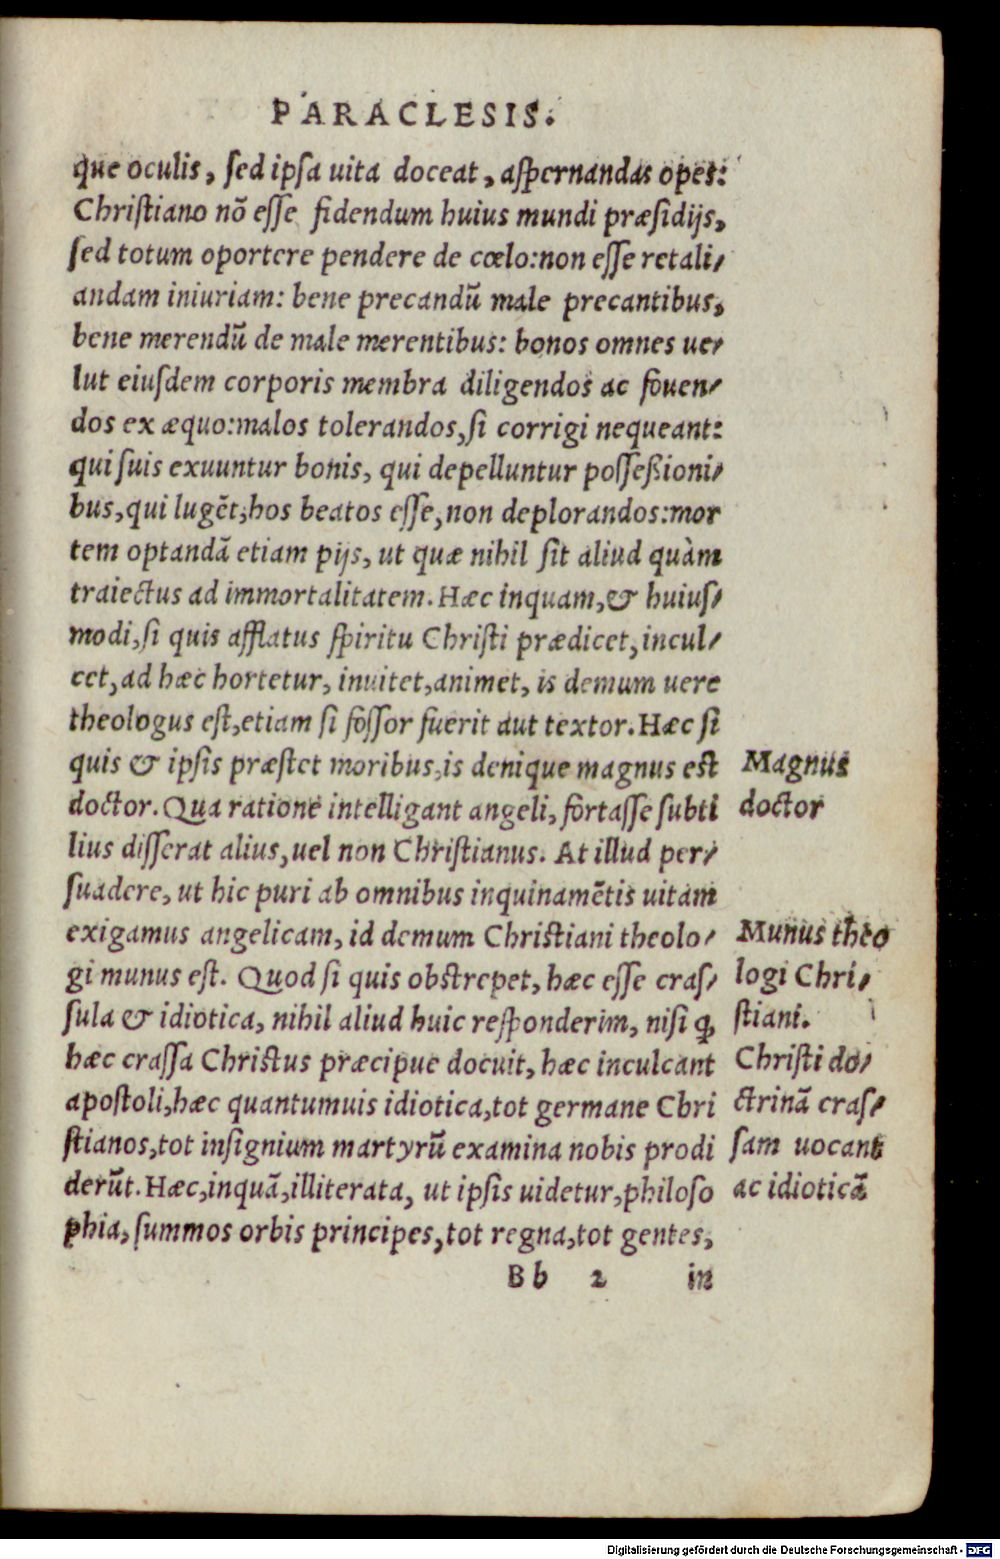 PARACLESIS.
que oculis, sed ipsa uita doceat, aspernandas opes:
Christiano nō esse fidendum huius mundi præsidijs,
sed totum oportere pendere de cœlo: non esse retali/
andam iniuriam: bene precandū male precantibus,
bene merendū de male merentibus: bonos omnes ue/
lut eiusdem corporis membra diligendos ac fouen/
dos ex æquo: malos tolerandos, si corrigi nequeant:
qui suis exuuntur bonis, qui depelluntur possessioni/
bus, qui lugēt, hos beatos esse, non deplorandos: mor
tem optandā etiam pijs, ut quæ nihil sit aliud quàm
traiectus ad immortalitatem. Hæc inquam, & huius/
modi, si quis afflatus spiritu Christi prædicet, incul/
cet, ad hæc hortetur, inuitet, animet, is demum uere
theologus est, etiam si fossor fuerit aut textor. Hæc si
quis & ipsis præstet moribus, is denique magnus est
doctor. Qua ratione intelligant angeli, fortasse subti
lius disserat alius, uel non Christianus. At illud per/
suadere, ut hic puri ab omnibus inquinamētis uitam
exigamus angelicam, id demum Christiani theolo/
gi munus est. Quod si quis obstrepet, hæc esse cras/
sula & idiotica, nihil aliud huic responderim, nisi ꝙ
hæc crassa Christus præcipue docuit, hæc inculcant
apostoli, hæc quantumuis idiotica, tot germane Chri
stianos, tot insignium martyrū examina nobis prodi
derūt. Hæc, inquā, illiterata, ut ipsis uidetur, philoso
phia, summos orbis principes, tot regna, tot gentes,
Bb 2 in
Magnus
doctor
Munus theo
logi Chri/
stiani.
Christi do/
ctrinā cras/
sam uocant
ac idioticā
Digitalisierung gefördert durch die Deutsche Forschungsgemeinschaft - DFG